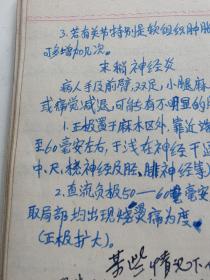 3.若有关节特别是软组织肿胀
可多增加几次。
末梢神经炎
病人手及前臂,双足,小腿麻
或痛觉减退,可能有不明显的肌
1.正极置于麻木区外,靠近
至60毫安左右,于浅在神经干
中、尺、桡神经及胫、腓神经等)
2.直流负极50——60毫安
取局部均出现烧烫痛为度
(正极扩大)。
某些情况下